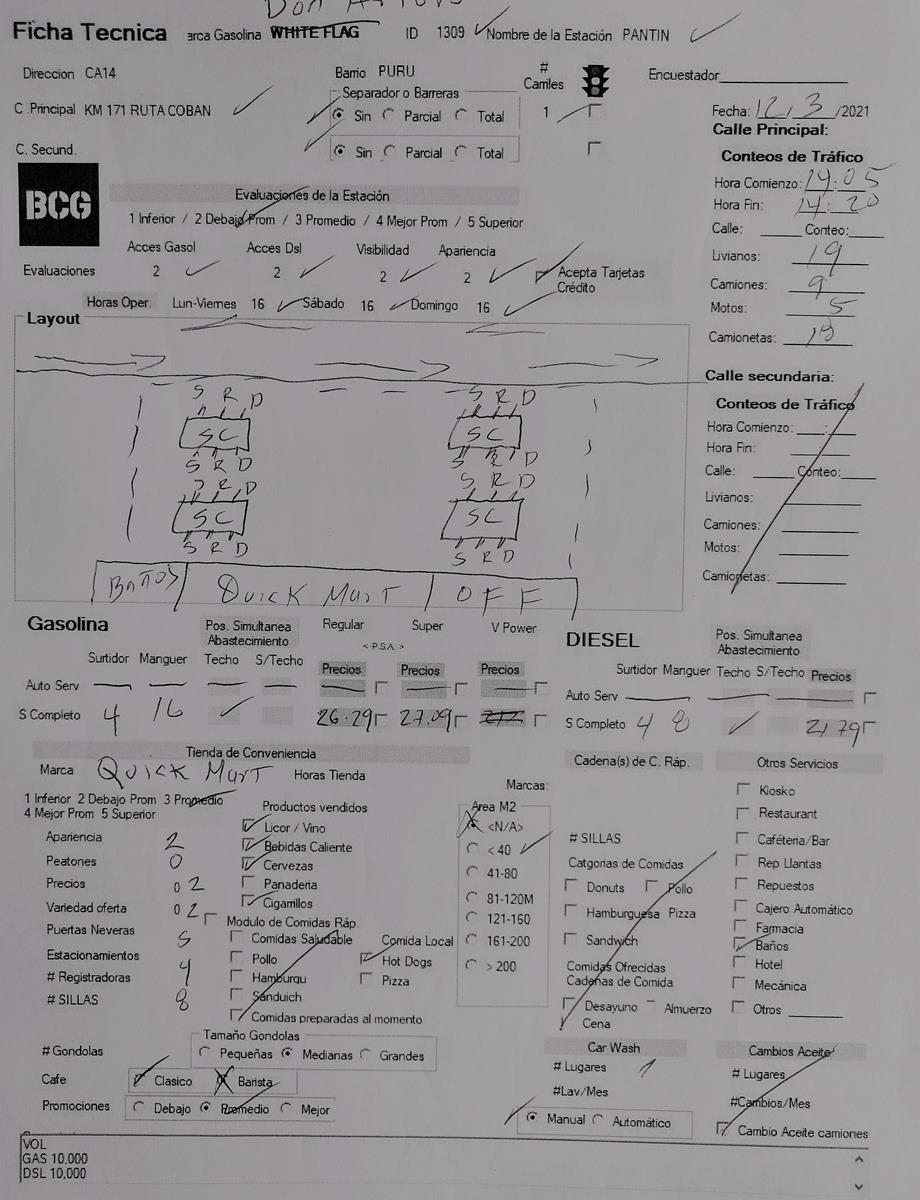 Don
Ficha Tecnica arca Gasolina WHITE FLAG ID 1309 Nombre de la Estación PANTIN
Direccion CA14 Barrio PURU # Carriles Encuestador
C .Principal KM 171 RUTA COBAN Separador o Barreras
Sin Parcial Total 1 Fecha: 12/3/2021
Calle Principal:
C. Secund. Sin Parcial Total
Conteos de Tráfico
BCG
Hora Comienzo: 14:05
Evaluaciones de la Estación Hora Fin: 14:20
1 Inferior / 2 Debajo Prom / 3 Promedio / 4 Mejor Prom / 5 Superior
Calle: Conteo:
Acces Gasol Acces Dsl Visibilidad Apariencia
Livianos: 19
Evaluaciones 2 2 2 2 Acepta Tarjetas Crédito
Camiones: 9
Horas Oper. Lun-Viernes 16 Sábado 16 Domingo 16
Motos: 5
Layout
Camionetas: 19
Calle secundaria:
Conteos de Tráfico
S R D S R D
Hora Comienzo: :
SC SC
Hora Fin: :
S R D S R D
Calle: Conteo:
S R D S R D
Livianos:
SC SC
Camiones:
S R D S R D
Motos:
Camionetas:
Baños Quick Mart OFF
Gasolina Pos. Simultanea Abastecimiento Regular Super V Power DIESEL Pos. Simultanea Abastecimiento
< P.S.A. >
Surtidor Manguer Techo S/Techo Precios Precios Precios Surtidor Manguer Techo S/Techo Precios
Auto Serv Auto Serv
S Completo 4 16 26.29 27.09 S Completo 4 8 21.79
Tienda de Conveniencia Cadena(s) de C. Ráp. Otros Servicios
Marca Quick Mart Horas Tienda
Marcas:
Kiosko
1 Inferior 2 Debajo Prom 3 Promedio
4 Mejor Prom 5 Superior
Productos vendidos Area M2
Restaurant
Licor / Vino <N/A>
Apariencia 2 Bebidas Caliente < 40 # SILLAS Caféteria/Bar
Peatones 0 Cervezas 41-80 Catgorias de Comidas Rep Llantas
Precios 0 2 Panaderia Donuts Pollo Repuestos
Variedad oferta 0 2 Cigarrillos 81-120M Hamburguesa Pizza Cajero Automático
Puertas Neveras 5 Modulo de Comidas Ráp. 121-160 Farmacia
Comidas Saludable Comida Local 161-200 Sandwich Baños
Estacionamientos Pollo Hot Dogs > 200 Comidas Ofrecidas Hotel
# Registradoras 1 Hamburqu Pizza Cadenas de Comida Mecánica
# SILLAS 8 Sánduich Desayuno Almuerzo Otros
Comidas preparadas al momento Cena
Tamaño Gondolas
# Gondolas Pequeñas Medianas Grandes Car Wash Cambios Aceite
# Lugares 1 # Lugares
Cafe Clasico Barista #Lav/Mes #Cambios/Mes
Promociones Debajo Promedio Mejor Manual Automático Cambio Aceite camiones
VOL
GAS 10,000
DSL 10,000